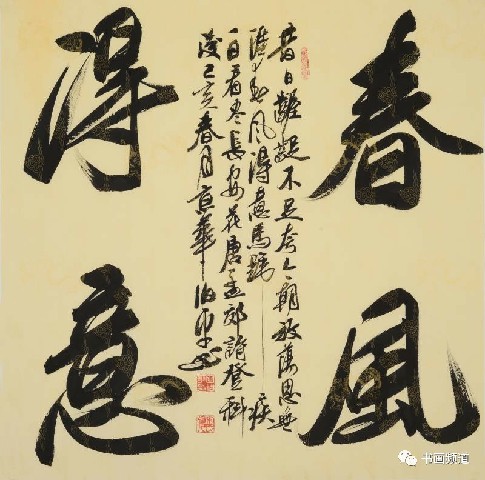 春風
得意
昔日齷齪不足夸今朝放蕩思無
涯春風得意馬蹄疾
一日看尽長安花唐孟郊詩登科
後己亥春月京華
书画频道